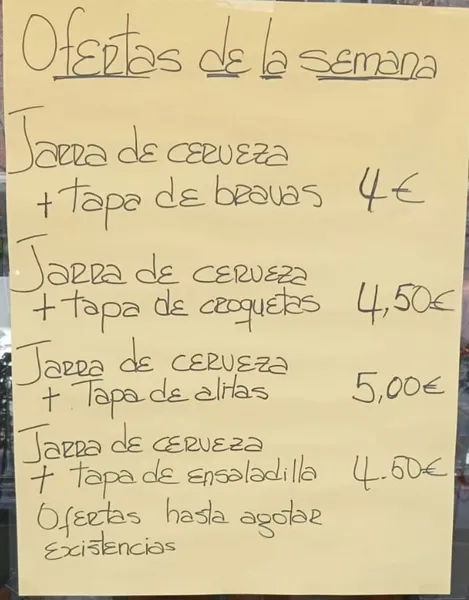 Ofertas de la semana
Jarra de cerveza
+ Tapa de bravas 4€
Jarra de cerveza
+ tapa de croquetas 4,50€
Jarra de cerveza
+ Tapa de alitas 5,00€
Jarra de cerveza
+ tapa de ensaladilla 4.50€
Ofertas hasta agotar
existencias